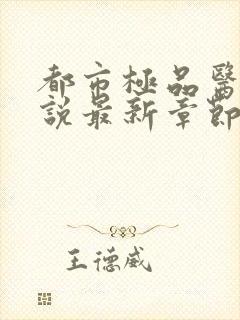 都市極品醫
說最新章節
王德威